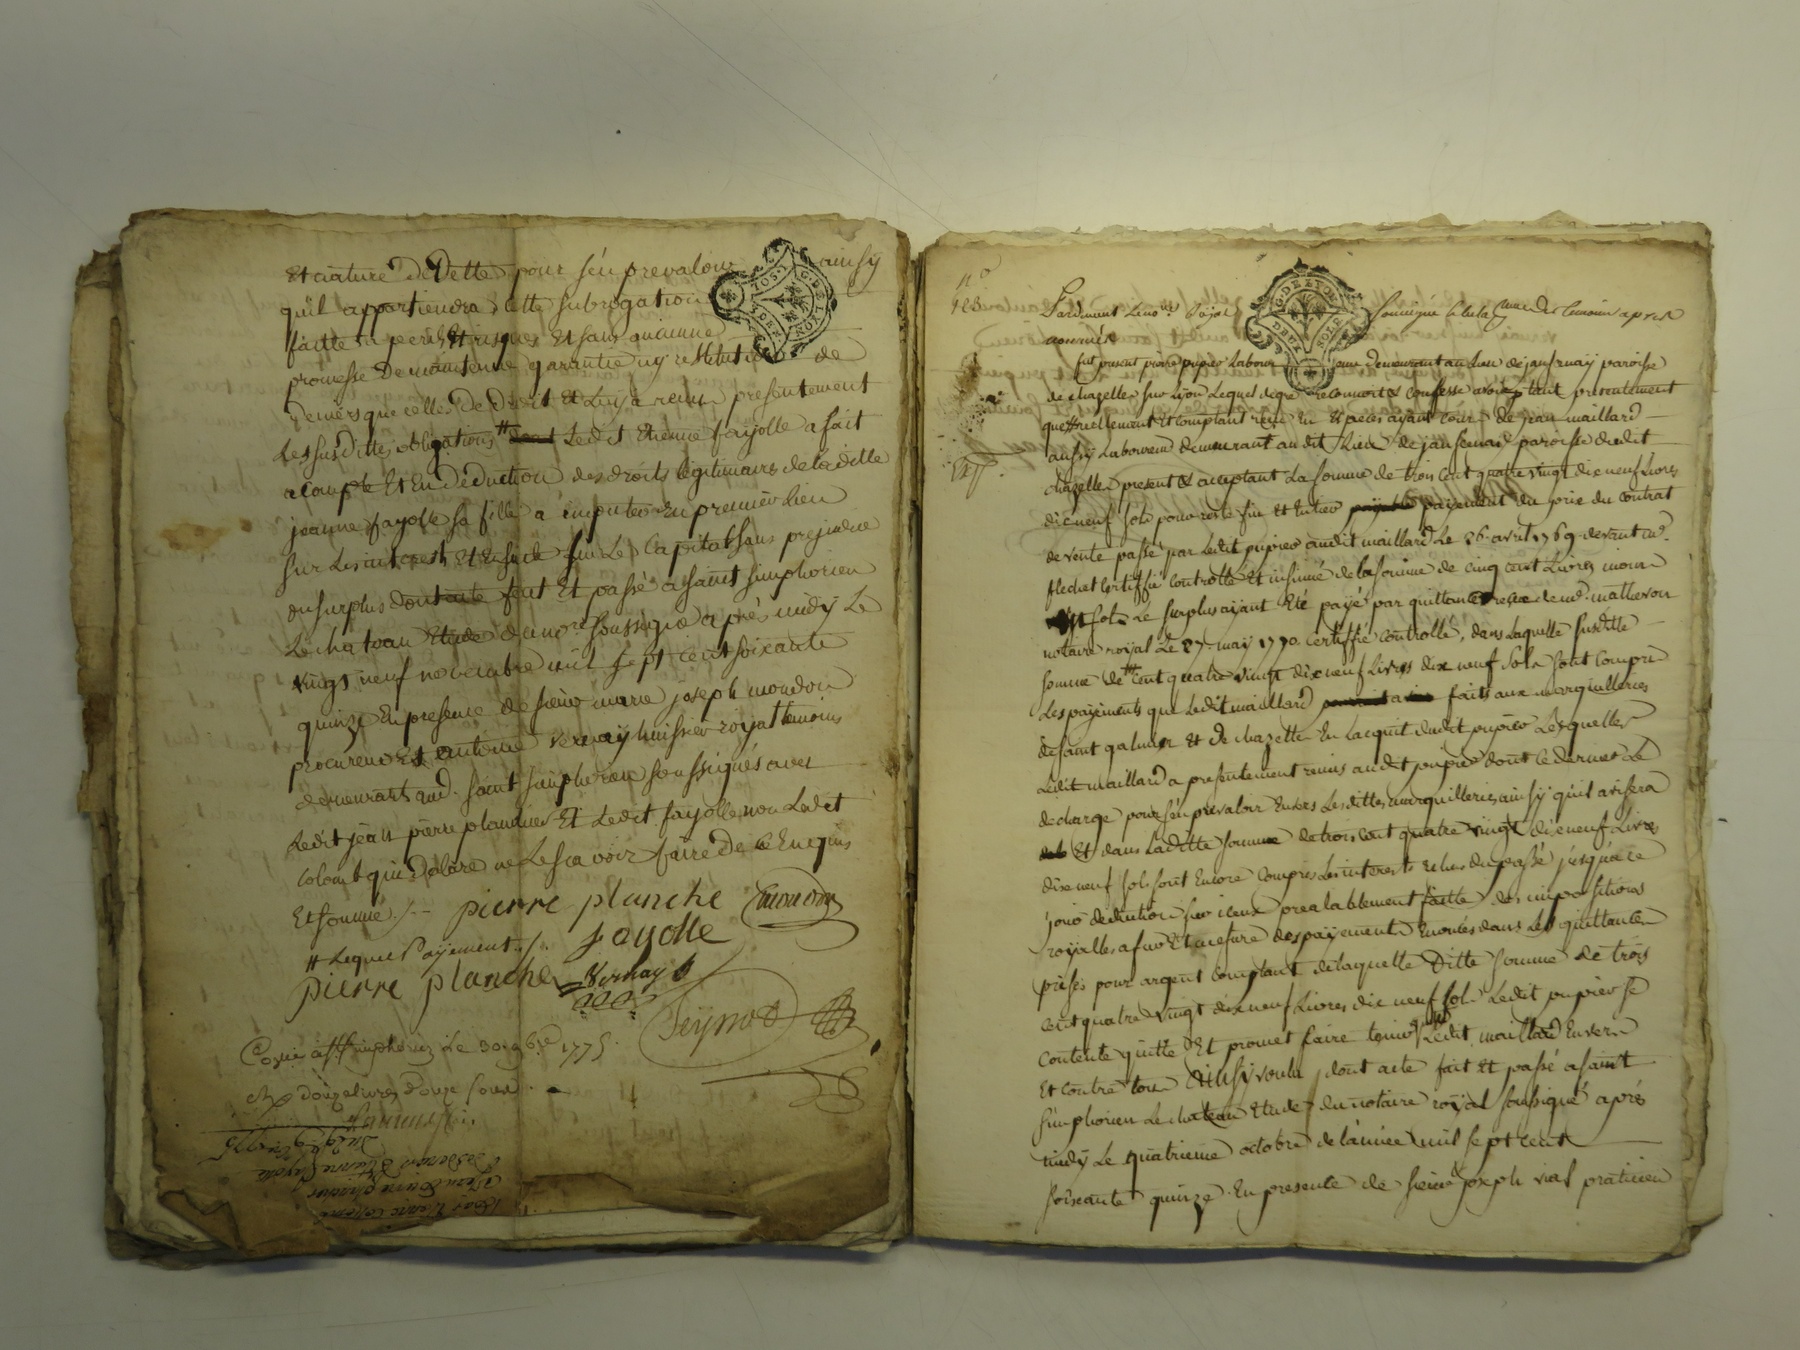 Et nature de Dette pour sén prevaloir ainsy
qu'il appartiendra cette subrogation
faitte a perils Et risques Et sans qu'aucune
promesse De maintenue garantie ny restitution de
deniers que celles De Droit Et Luy a remis presentement
Les susdittes obligations # Ledit Etienne fayolle a fait
a compte Et En Déduction des droits légitimaires de la ditte
jeanne fayolle sa fille a imputer En premier lieu
sur Les interests Et Ensuite sur Le Capital sans prejudice
du surplus dont acte fait Et passé a saint simphorien
Le chateau Etude du no.re soussigné après midy Le
vingt neuf novembre mil sept cent soixante
quinze En presence de sieur marie joseph moudon
procureur Et antoine vernay huissier royal temoins
demeurants aud. saint simphorien soussignés avec
Ledit jean pierre planche Et Ledit fayolle non Ledit
colomb qui a déclaré ne Le scavoir faire De Ce Enquis
Et sommé ./-- pierre planche moudon
# Lequel Payement ./. fayolle
pierre planche Vernay
Peyssod
Con.lé a St Simphorien Le 30 9bre 1775.
Reçu douze livres douze sous
n°
123
Pardevant Le no.re royal soussigné Et les temoins apres
nommés
fut present pierre pupier Laboureur demeurant au Lieu de jansenay paroisse
de chazelles sur Lyon Lequel degré reconnoit & confesse avoir presentement
que réellement Et comptant reçu En Especes ayant cours de jean maillard
aussy Laboureur demeurant audit Lieu de jansenay paroisse dudit
chazelles present & acceptant La somme de trois cent quatre vingt dix neuf Livres
dix neuf sols pour reste fin Et Entier payement du prix du contrat
de vente passé par Ledit pupier audit maillard Le 26 avril 1769 devant me.
flechet Certiffié Controllé Et insinué de la somme de cinq cent Livres moins
sols Le surplus ayant Eté payé par quittance reçue de me. matheron
notaire royal Le 27 may 1770 certiffié controllé, dans Laquelle susditte
somme de # cent quatre vingt dix neuf Livres dix neuf sols sont Compris
Les payements que Ledit maillard a faits aux marguilleries
de saint galmier Et de chazelles En L'acquit dudit pupier Lesquelles
Ledit maillard a presentement remis audit pupier dont ce dernier Le
decharge pour sén prevaloir Envers Lesdittes marguilleries ainsy qu'il avisera
Et dans Laditte somme de trois cent quatre vingt dix neuf Livres
dix neuf sols sont Encore Compris Les interests Echus du passé jusqu'à ce
jour deduction sur iceux prealablement faitte des impositions
royalles a fur Et mesure des payements Enoncés dans Les quittances
prises pour argent comptant de laquelle Ditte somme de trois
cent quatre vingt dix neuf Livres dix neuf sols Ledit pupier se
contente quitte Et promet faire tenir quitte Ledit maillard Envers
Et contre tous Ainsy voulu dont acte fait Et passé a saint
simphorien Le chateau Etude du notaire royal soussigné après
midy Le quatrieme octobre de l'année mil sept cent
soixante quinze En presence de sieur joseph vial praticien